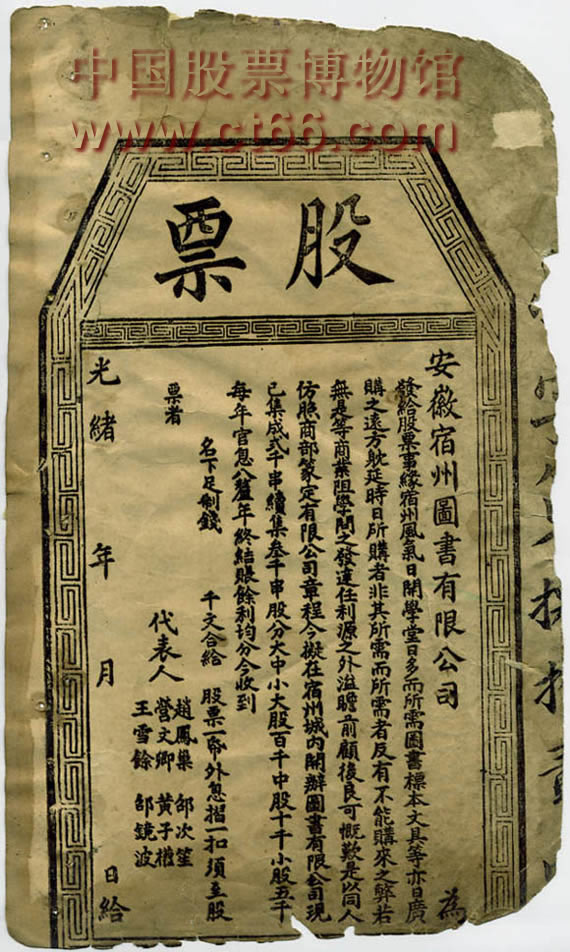 中国股票博物馆
www.ct66.com
股票
安徽宿州圖書有限公司 為
發給股票事緣宿州風氣日開學堂日多而所需圖書標本文具等亦日廣
購之遠方躭延時日所購者非其所需而所需者反有不能購來之弊若
無是等商業阻學問之發達任利源之外溢瞻前顧後良可慨歎是以同人
仿照商部篆定有限公司章程今擬在宿州城內開辦圖書有限公司現
已集成弍千串續集叁千串股分大中小大股百千中股十千小股五千
每年官息八釐年終結賬餘利均分今收到
名下足制錢 千文合給 股票一帋外息摺一扣須至股
票者
代表人
趙鳳巢 邵次笙
營文卿 黃子權
王雪餘 邵鏡波
光緒 年 月 日給